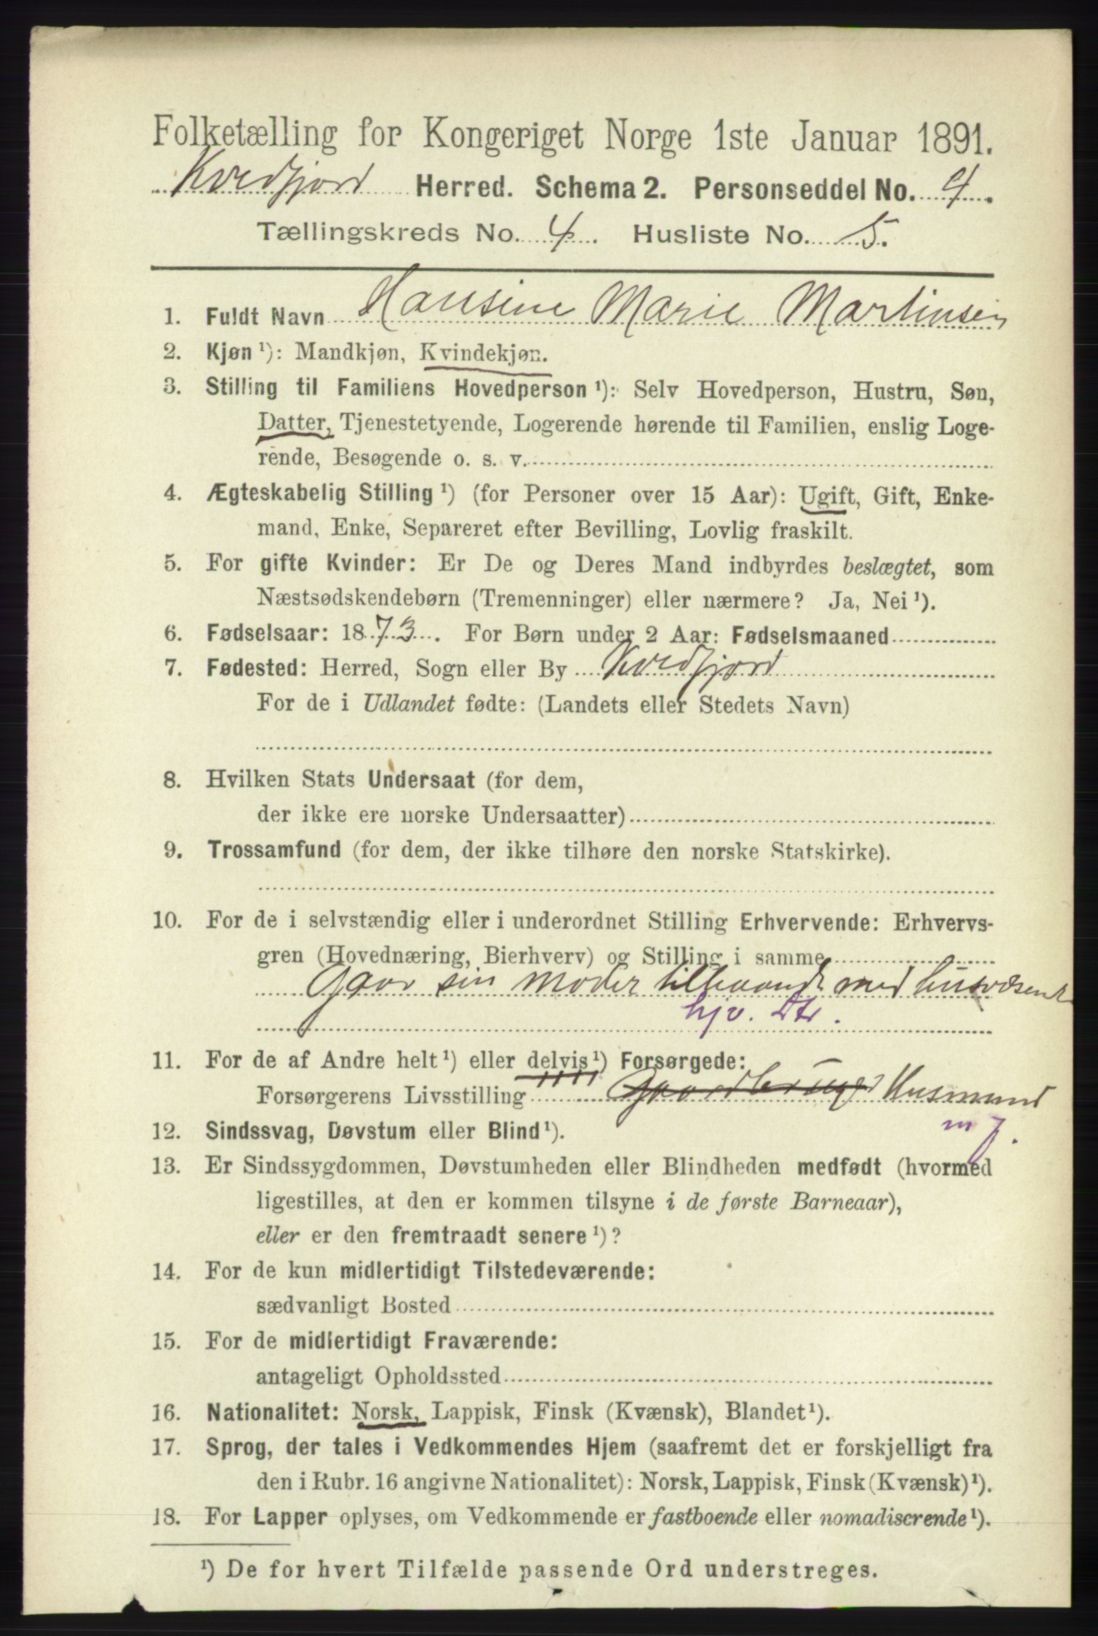 Folketælling for Kongeriget Norge 1ste Januar 1891.
Kvedfjord Herred. Schema 2. Personseddel No. 4.
Tællingskreds No. 4. Husliste No. 5.
1. Fuldt Navn Hansine Marie Martinsen
2. Kjøn ¹): Mandkjøn, Kvindekjøn.
3. Stilling til Familiens Hovedperson ¹): Selv Hovedperson, Hustru, Søn,
Datter, Tjenestetyende, Logerende hørende til Familien, enslig Loge-
rende, Besøgende o. s. v.
4. Ægteskabelig Stilling ¹) (for Personer over 15 Aar): Ugift, Gift, Enke-
mand, Enke, Separeret efter Bevilling, Lovlig fraskilt.
5. For gifte Kvinder: Er De og Deres Mand indbyrdes beslægtet, som
Næstsødskendebørn (Tremenninger) eller nærmere? Ja, Nei ¹).
6. Fødselsaar: 1873. For Børn under 2 Aar: Fødselsmaaned
7. Fødested: Herred, Sogn eller By Kvedfjord
For de i Udlandet fødte: (Landets eller Stedets Navn)
8. Hvilken Stats Undersaat (for dem,
der ikke ere norske Undersaatter)
9. Trossamfund (for dem, der ikke tilhøre den norske Statskirke).
10. For de i selvstændig eller i underordnet Stilling Erhvervende: Erhvervs-
gren (Hovednæring, Bierhverv) og Stilling i samme
Gaar sin moder tilhaande med husvæsenet
hjv. Dtr.
11. For de af Andre helt ¹) eller delvis ¹) Forsørgede:
Forsørgerens Livsstilling Gaardbruger Husmand
m j.
12. Sindssvag, Døvstum eller Blind ¹).
13. Er Sindssygdommen, Døvstumheden eller Blindheden medfødt (hvormed
ligestilles, at den er kommen tilsyne i de første Barneaar),
eller er den fremtraadt senere ¹)?
14. For de kun midlertidigt Tilstedeværende:
sædvanligt Bosted
15. For de midlertidigt Fraværende:
antageligt Opholdssted
16. Nationalitet: Norsk, Lappisk, Finsk (Kvænsk), Blandet ¹).
17. Sprog, der tales i Vedkommendes Hjem (saafremt det er forskjelligt fra
den i Rubr. 16 angivne Nationalitet): Norsk, Lappisk, Finsk (Kvænsk) ¹).
18. For Lapper oplyses, om Vedkommende er fastboende eller nomadiserende ¹).
¹) De for hvert Tilfælde passende Ord understreges.